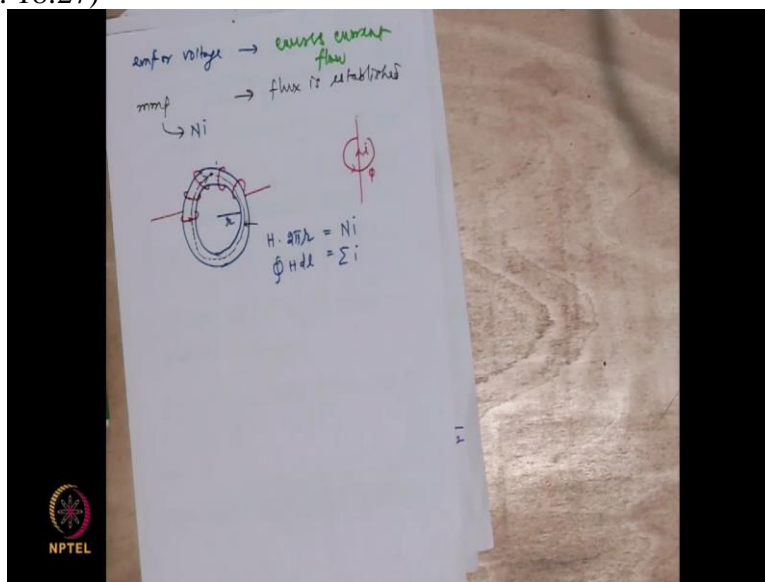 : 18:27)
emf or voltage → causes current
flow
mmf → flux is established
↳ Ni
i
φ
r
H. 2πr = Ni
∮ H dl = Σ i
NPTEL